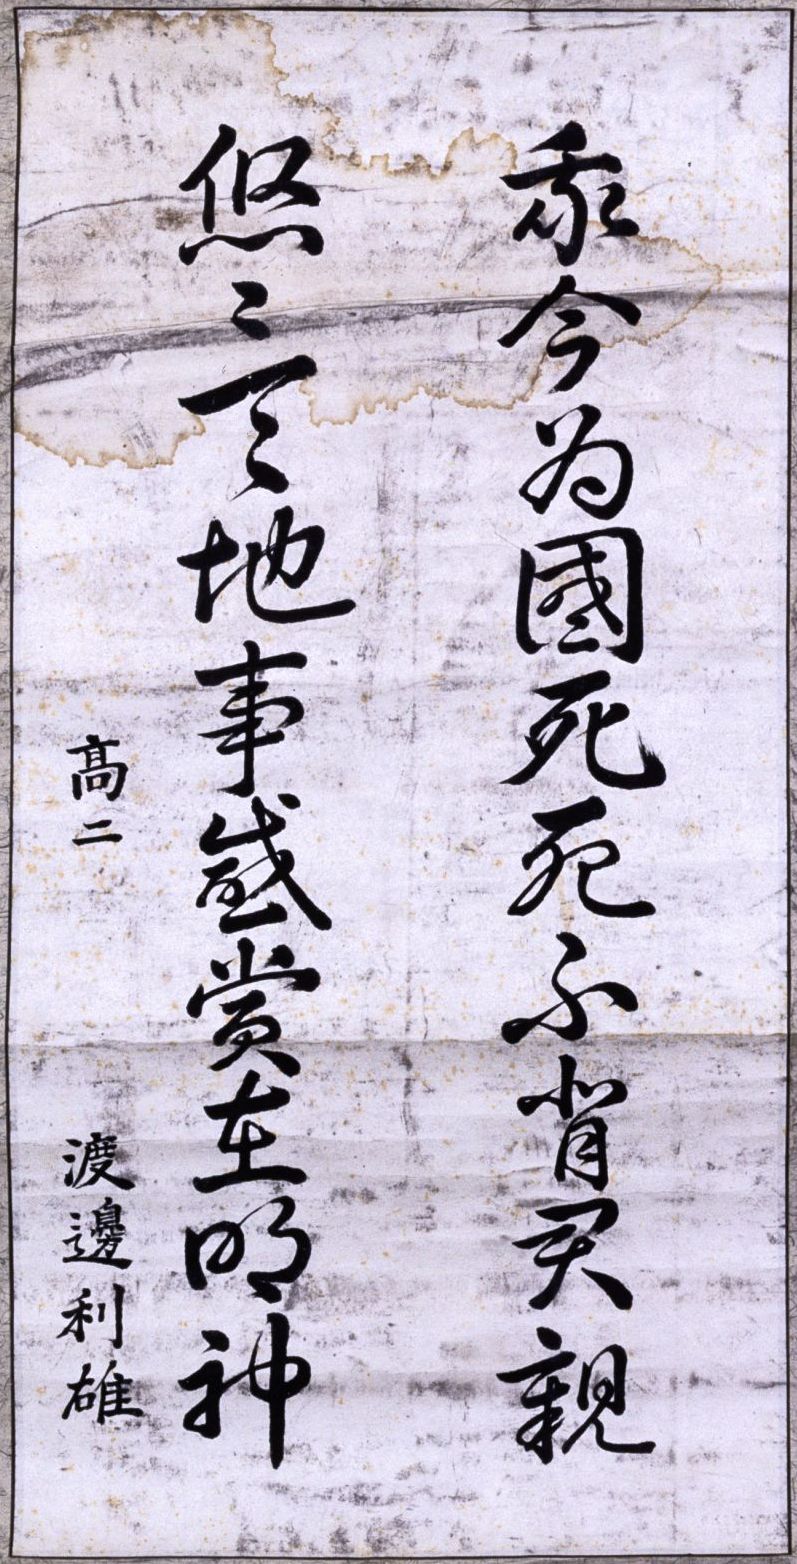 我今為國死死不背君親
悠々天地事感賞在明神
高二 渡邊利雄